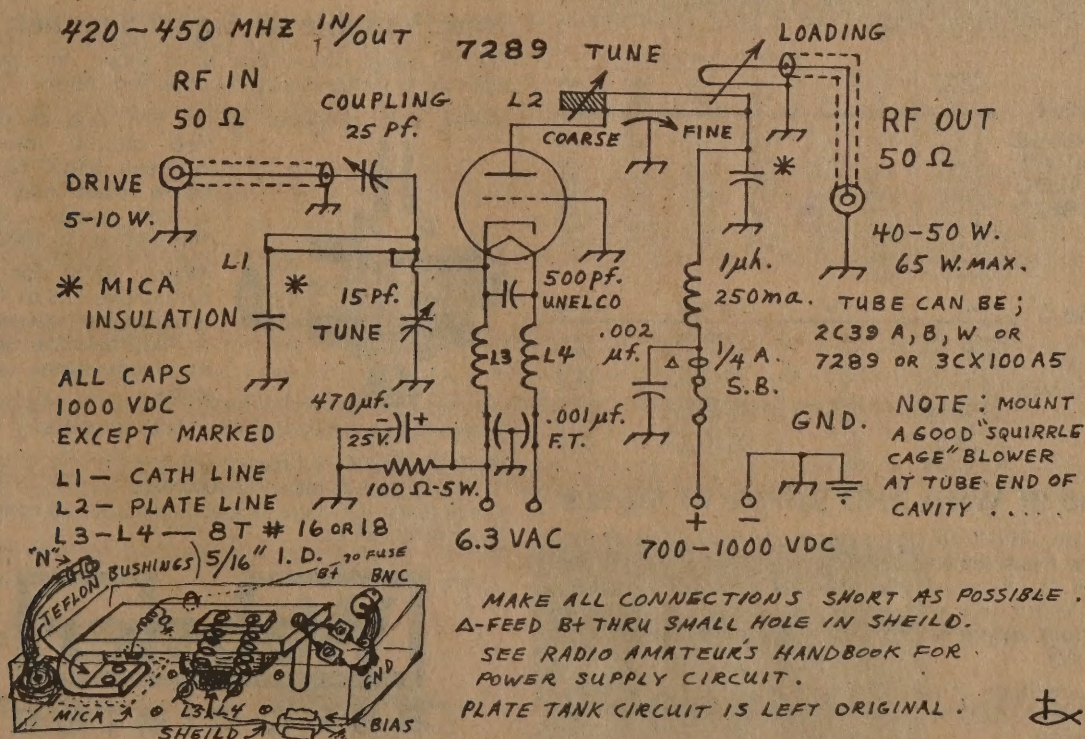 420~450 MHZ IN/OUT
7289
TUNE
LOADING
RF IN
50 Ω
COUPLING
25 Pf.
L2
COARSE
FINE
RF OUT
50 Ω
DRIVE
5-10 W.
*
40-50 W.
65 W. MAX.
L1
* MICA
INSULATION
*
15 Pf.
TUNE
500 Pf.
UNELCO
1 µh.
250 ma.
TUBE CAN BE;
2C39 A, B, W OR
7289 OR 3CX100A5
L3
L4
.002
µf.
Δ
1/4 A.
S.B.
ALL CAPS
1000 VDC
EXCEPT MARKED
470 µf.
- +
25V.
100 Ω-5W.
.001 µf.
F.T.
GND.
NOTE: MOUNT
A GOOD "SQUIRRLE
CAGE" BLOWER
AT TUBE END OF
CAVITY .....
L1 — CATH LINE
L2 — PLATE LINE
L3-L4 — 8T # 16 OR 18
5/16" I.D.
6.3 VAC
+ -
700-1000 VDC
"N"
TEFLON BUSHINGS
TO FUSE
B+
BNC
*
GND
MICA
L3
L4
SHEILD
BIAS
MAKE ALL CONNECTIONS SHORT AS POSSIBLE.
Δ-FEED B+ THRU SMALL HOLE IN SHEILD.
SEE RADIO AMATEUR'S HANDBOOK FOR
POWER SUPPLY CIRCUIT.
PLATE TANK CIRCUIT IS LEFT ORIGINAL.